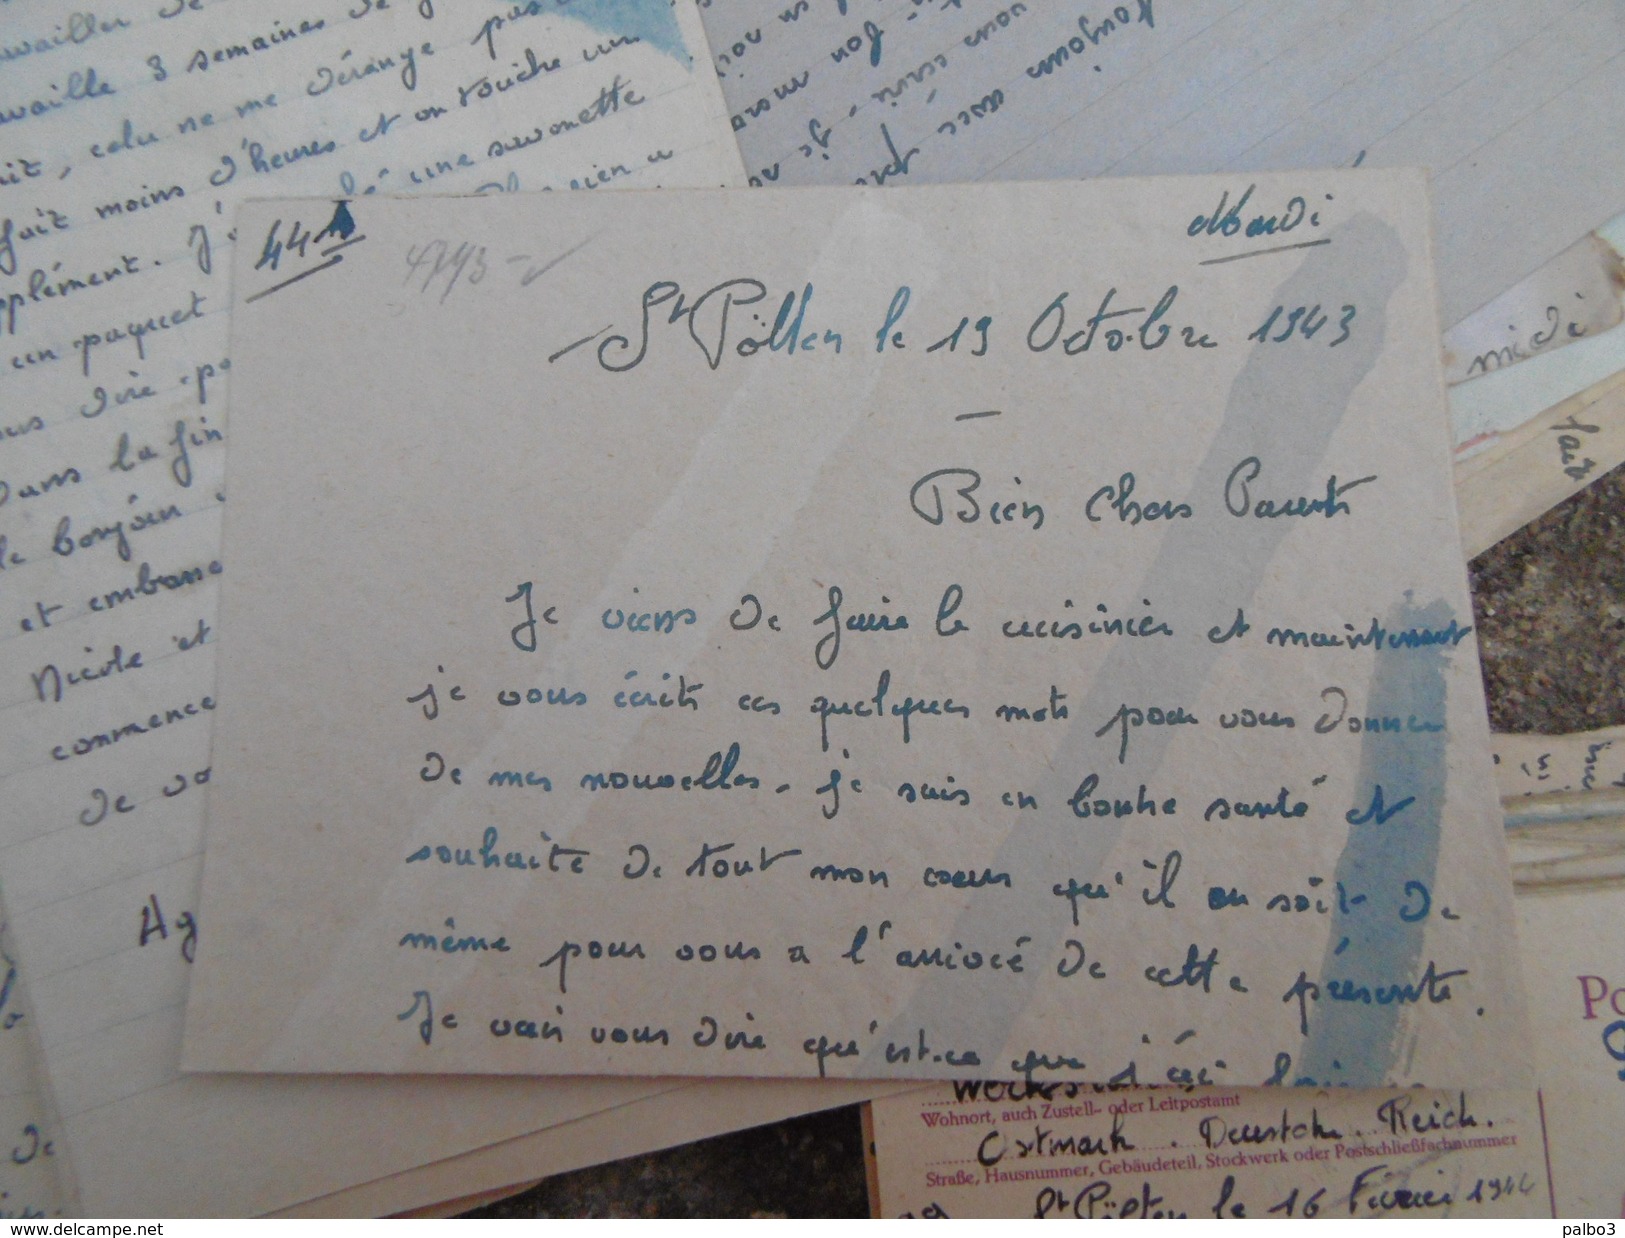 availler de
availle 3 semaines de
uit, cela ne me dérange pas
fait moins d'heures et on touche un
pplément. J'
une savonette
rien a
un paquet
ous dire
Dans la fin
le bonjour
et embrasse
Nicole et
commence
de vo
Ag
de
toujours avec
midi
441
4743-
Mardi
St Pölten le 19 Octobre 1943
Bien Chers Parents
Je viens de faire le cuisinier et maintenant
je vous écrits ces quelques mots pour vous donner
de mes nouvelles. je suis en bonne santé et
souhaite de tout mon cœur qu'il en soit de
même pour vous a l'arrivée de cette présente.
Je vais vous dire qu'est-ce que j'ai
Wohnort, auch Zustell- oder Leitpostamt
Ostmark. Deustch. Reich.
Straße, Hausnummer, Gebäudeteil, Stockwerk oder Postschließfachnummer
St Pölten le 16 Fevrier 1944
Po
www.delcampe.net
palbo3